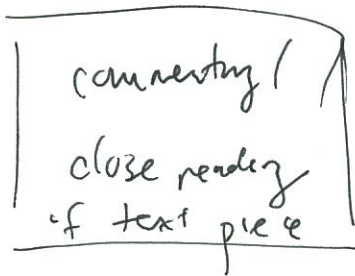 commenting /
close reading
if text piece